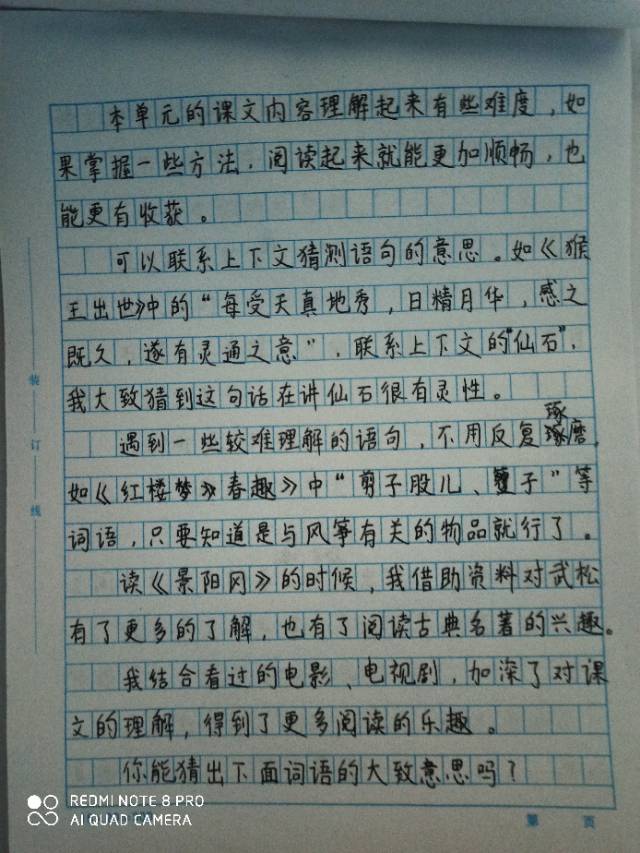 本单元的课文内容理解起来有些难度，如
果掌握一些方法，阅读起来就能更加顺畅，也
能更有收获。
可以联系上下文猜测语句的意思。如《猴
王出世》中的“每受天真地秀，日精月华，感之
既久，遂有灵通之意”，联系上下文的“仙石”，
我大致猜到这句话在讲仙石很有灵性。
琢
遇到一些较难理解的语句，不用反复琢磨，
如《红楼梦》《春趣》中“剪子股儿、籰子”等
词语，只要知道是与风筝有关的物品就行了。
读《景阳冈》的时候，我借助资料对武松
有了更多的了解，也有了阅读古典名著的兴趣。
我结合看过的电影、电视剧，加深了对课
文的理解，得到了更多阅读的乐趣。
你能猜出下面词语的大致意思吗？
装
订
线
REDMI NOTE 8 PRO
AI QUAD CAMERA
第 页